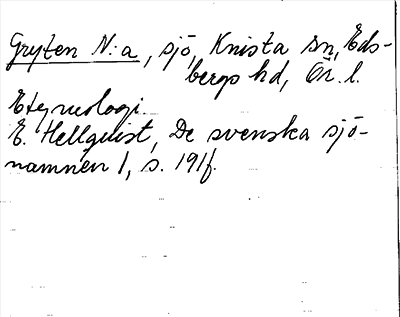 Gryten N:a, sjö, Knista sn, Eds-
bergs hd, Ör. l.
Etymologi.
E. Hellquist, De svenska sjö-
namnen 1, s. 191f.